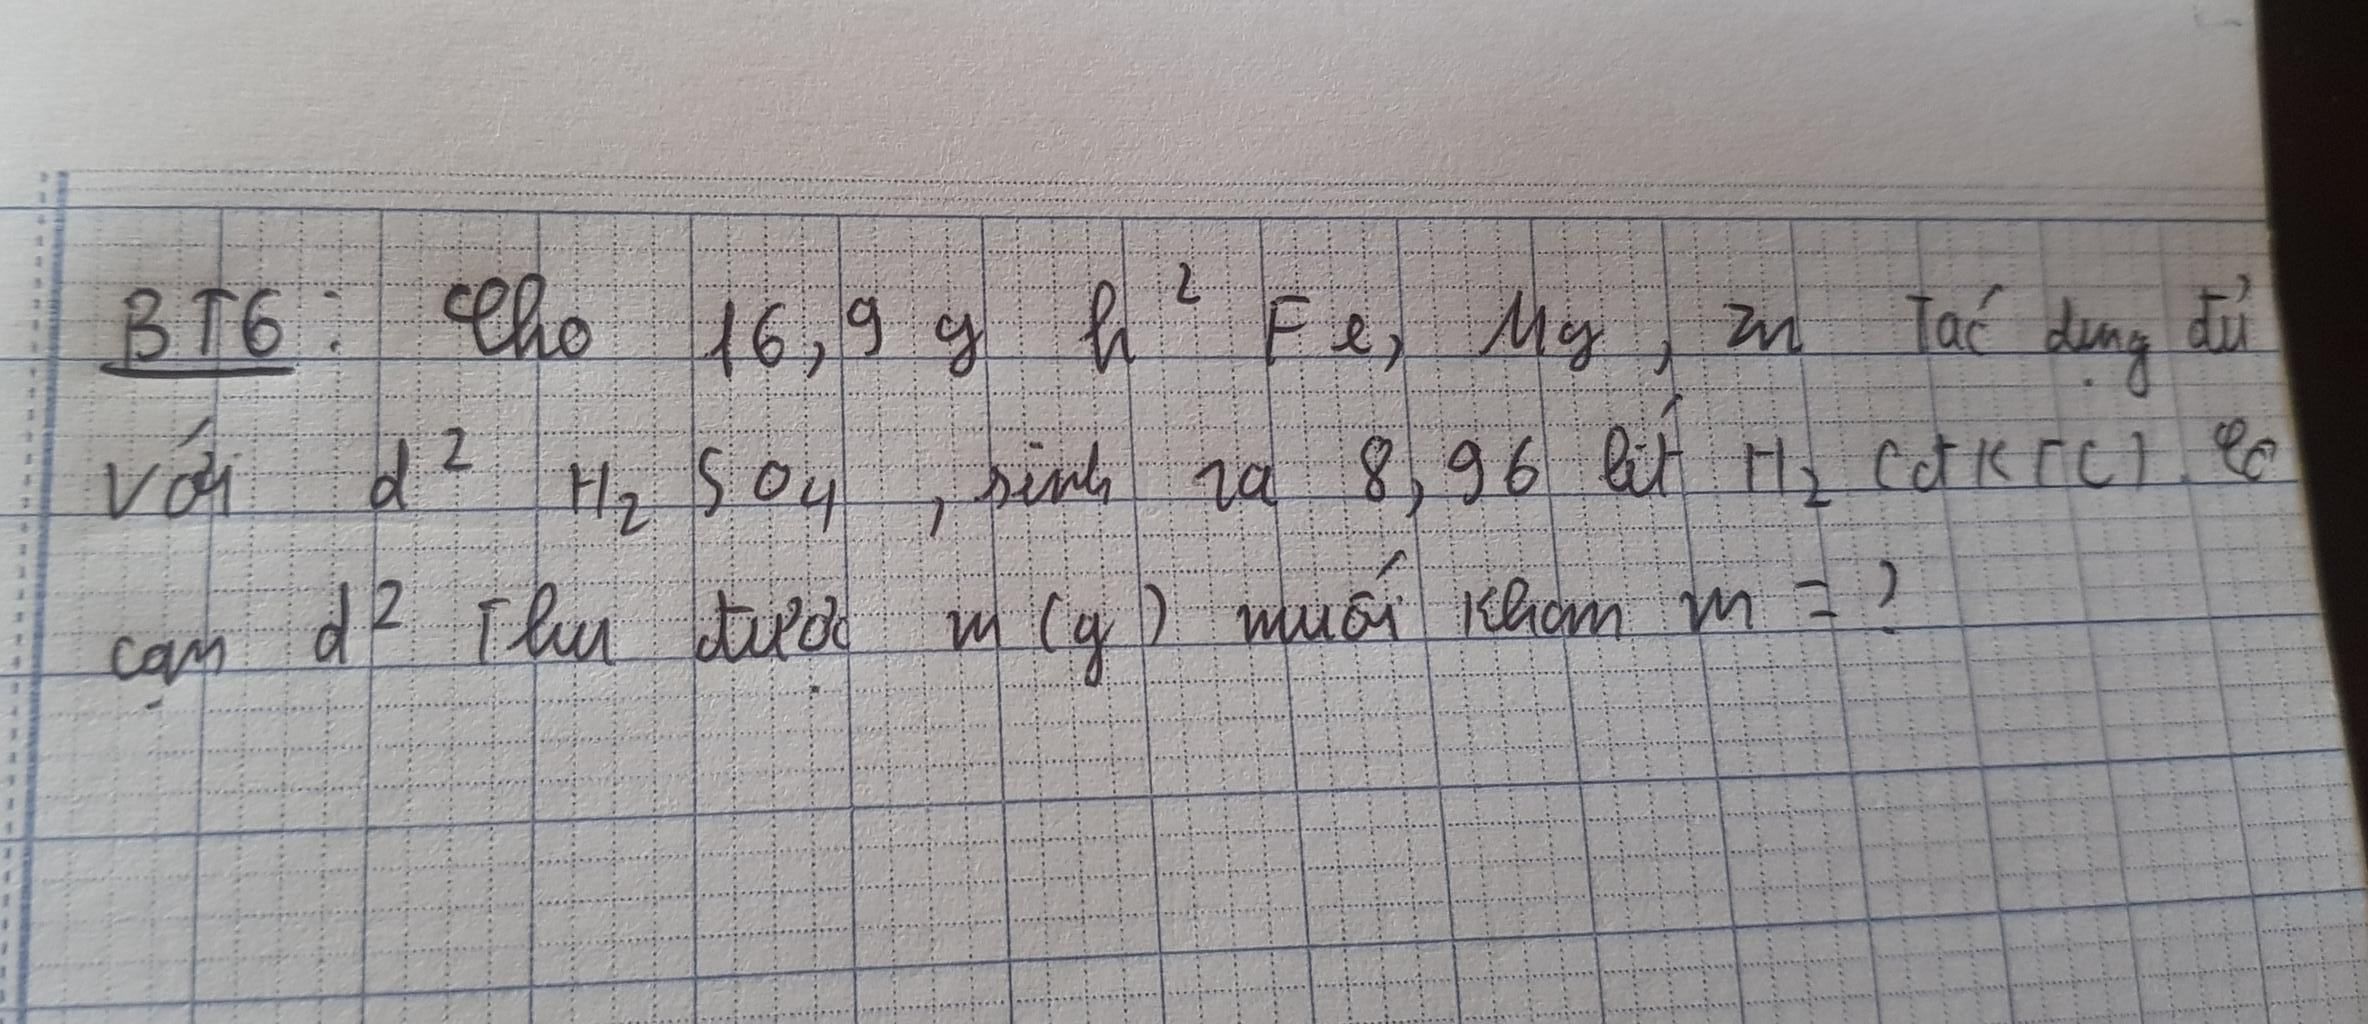 BT6: Cho 16,9 g h² Fe, Mg, Zn Tác dụng đủ
với d² H₂SO₄, sinh ra 8,96 lít H₂ (đKTC). Cô
cạn d² Thu được m (g) muối Khan m = ?